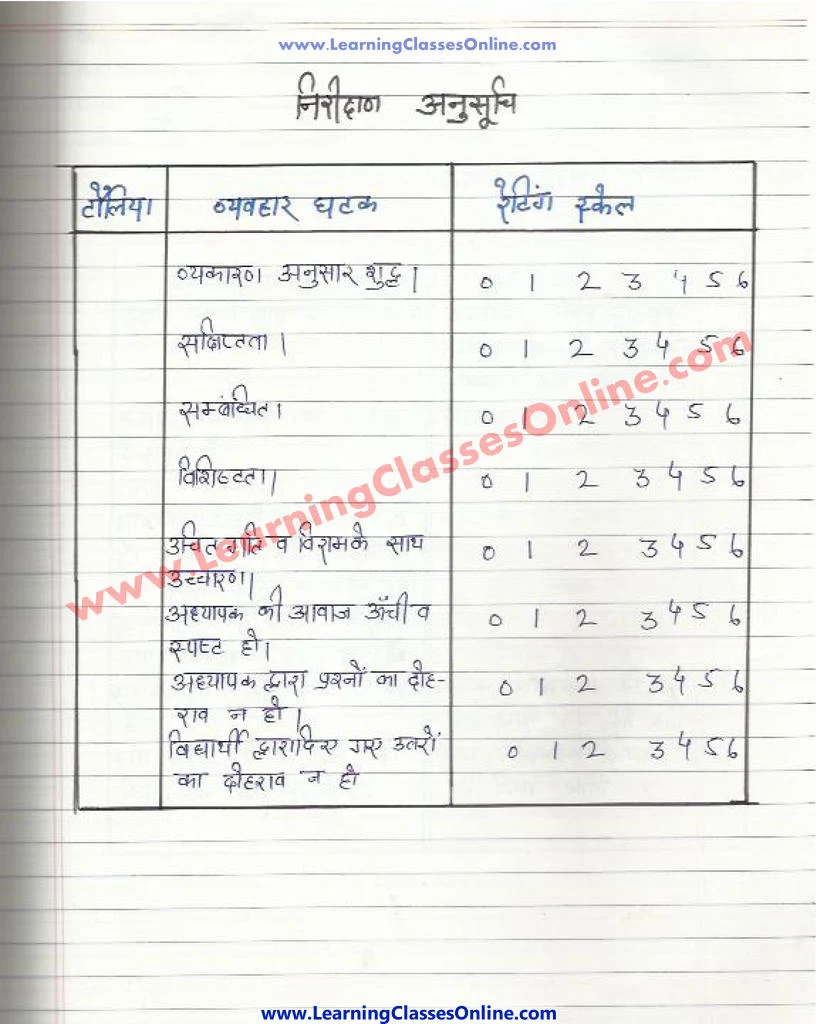 www.LearningClassesOnline.com
निरीक्षण अनुसूचि
टोलिया व्यवहार घटक रेटिंग स्केल
व्यकारण अनुसार शुद्ध। 0 1 2 3 4 5 6
संक्षिप्तता। 0 1 2 3 4 5 6
सम्बंधित। 0 1 2 3 4 5 6
विशिष्टता। 0 1 2 3 4 5 6
उचित गति व विराम के साथ 0 1 2 3 4 5 6
उच्चारण।
अध्यापक की आवाज ऊँची व 0 1 2 3 4 5 6
स्पष्ट हो।
अध्यापक द्वारा प्रश्नों का दोह- 0 1 2 3 4 5 6
राव न हो।
विद्यार्थी द्वारा दिए गए उतरों 0 1 2 3 4 5 6
का दोहराव न हो
www.LearningClassesOnline.com
www.LearningClassesOnline.com